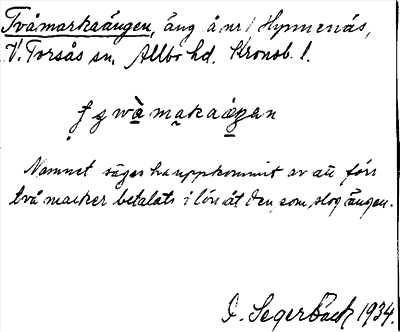 Tvåmarkaängen, äng å nr 1 Hymmenäs,
V. Torsås sn, Allbo hd. Kronob. l.
Namnet säges ha uppkommit av att förr
två marker betalats i lön åt den, som slog ängen.
D. Segerbäck 1934.